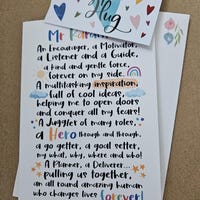 Hug
Mr
An Encourager, a Motivator,
a Listener and a Guide,
a kind and gentle force,
forever on my side.
A multitasking inspiration,
full of cool ideas,
helping me to open doors
and conquer all my fears!
A Juggler of many roles,
a Hero through and through,
a go getter, a goal setter,
my what, why, where and who!
A Planner, a Deliverer...
pulling us together,
an all round amazing human
who changes lives forever!